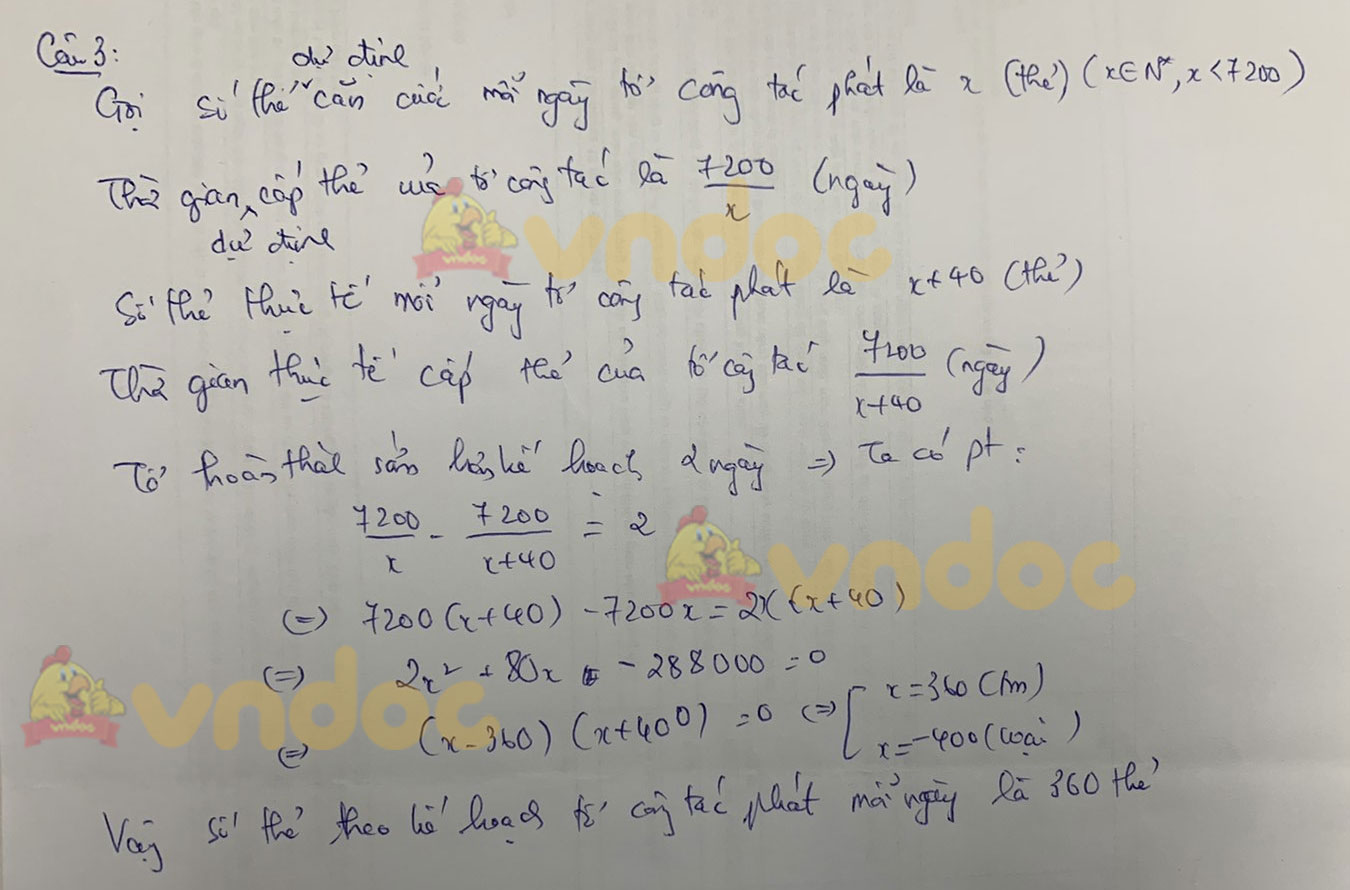 Câu 3:
dự định
Gọi số thẻ căn cước mỗi ngày tổ công tác phát là x (thẻ) (x ∈ N*, x < 7200)
Thời gian cấp thẻ của tổ công tác là 7200/x (ngày)
dự định
Số thẻ thực tế mỗi ngày tổ công tác phát là x+40 (thẻ)
Thời gian thực tế cấp thẻ của tổ công tác 7200/(x+40) (ngày)
Tổ hoàn thành sớm hơn kế hoạch 2 ngày => Ta có pt:
7200/x - 7200/(x+40) = 2
(=) 7200(x+40) - 7200x = 2x(x+40)
(=) 2x² + 80x - 288000 = 0
(=) (x-360)(x+400) = 0 <=> [ x = 360 (tm)
x = -400 (loại)
Vậy số thẻ theo kế hoạch tổ công tác phát mỗi ngày là 360 thẻ
vndoc
vndoc
vndoc
vndoc
vndoc
vndoc